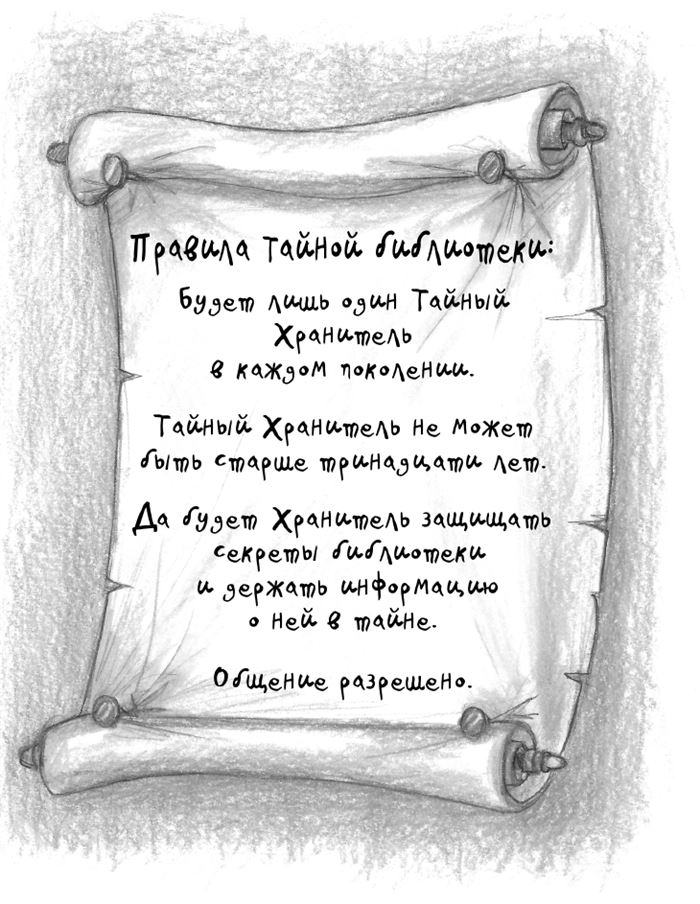 Правила тайной библиотеки:
Будет лишь один Тайный
Хранитель
в каждом поколении.
Тайный Хранитель не может
быть старше тринадцати лет.
Да будет Хранитель защищать
секреты библиотеки
и держать информацию
о ней в тайне.
Общение разрешено.